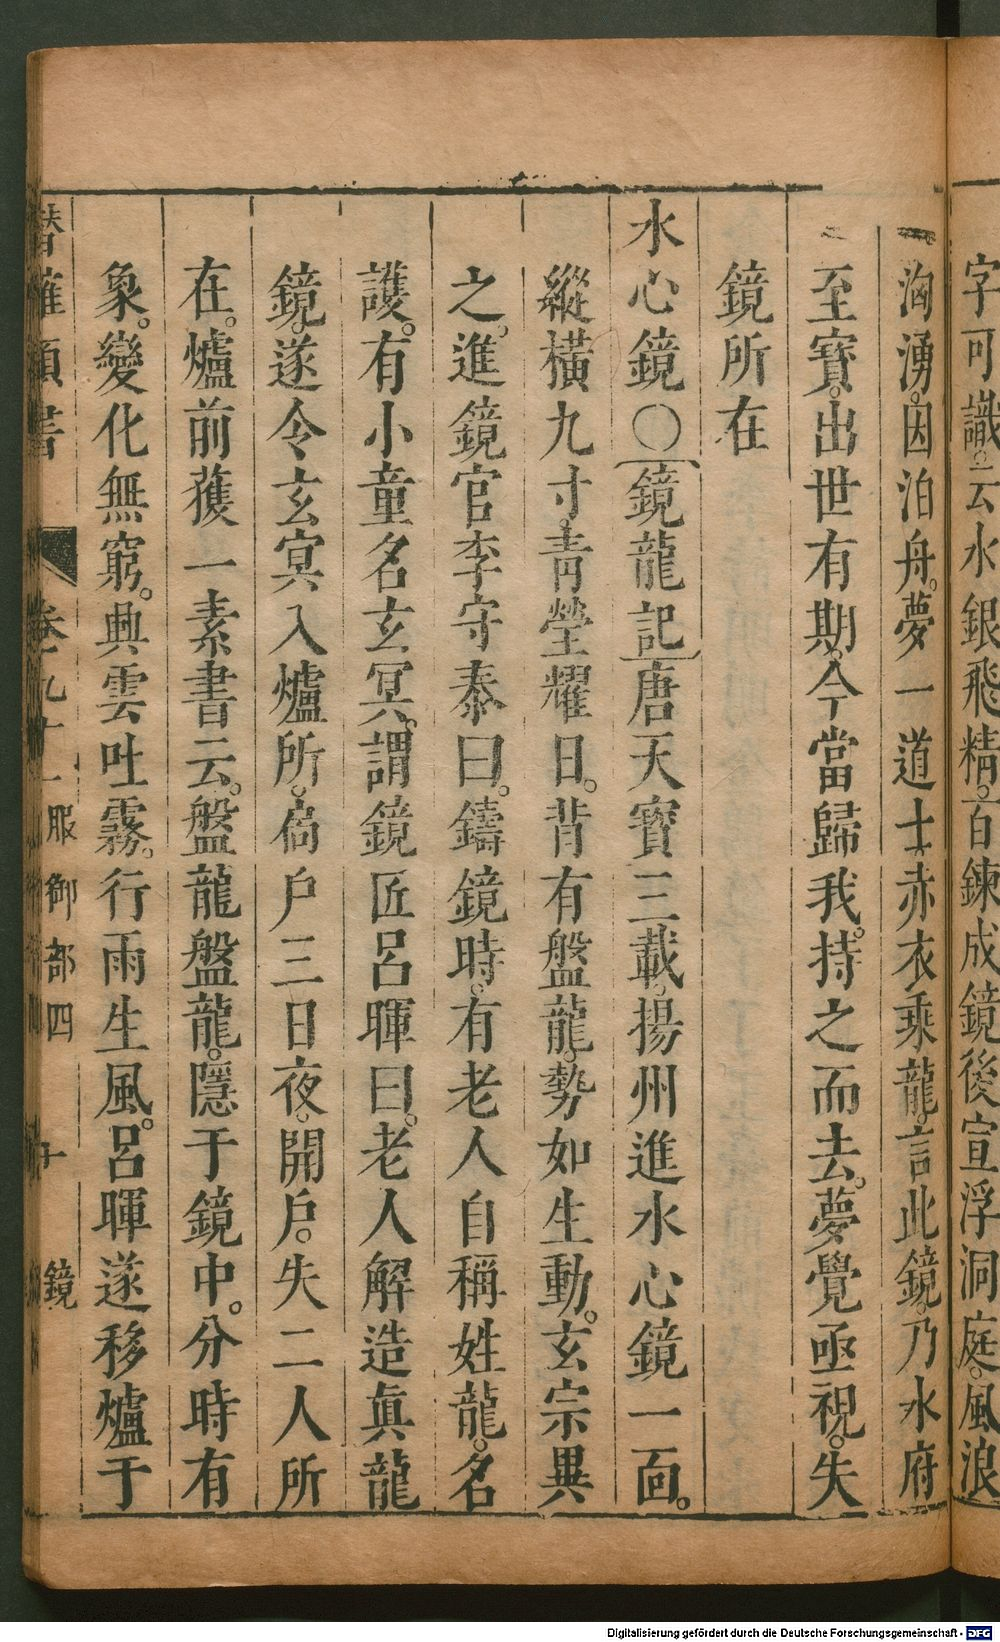 字可識。云水銀飛精。百鍊成鏡後宣浮洞庭。風浪
洶湧。因泊舟。夢一道士赤衣乘龍。言此鏡。乃水府
至寶。出世有期。今當歸我。持之而去。夢覺亟視。失
鏡所在
水心鏡○〔鏡龍記〕唐天寶三載。揚州進水心鏡一面。
縱橫九寸。靑瑩耀日。背有盤龍。勢如生動。玄宗異
之。進鏡官李守泰曰。鑄鏡時。有老人自稱姓龍。名
護。有小童名玄冥。謂鏡匠呂暉曰。老人解造眞龍
鏡。遂令玄冥入爐所。扃戶三日夜。開戶。失二人所
在。爐前獲一素書云。盤龍盤龍。隱于鏡中。分時有
象。變化無窮。興雲吐霧。行雨生風。呂暉遂移爐于
潛確類書 卷九十一 服御部四 鏡
Digitalisierung gefördert durch die Deutsche Forschungsgemeinschaft - DFG